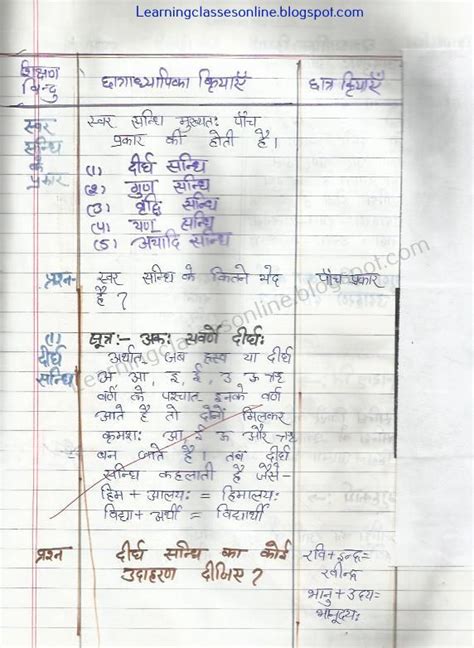 Learningclassesonline.blogspot.com
शिक्षण बिन्दु
छात्राध्यापिका क्रियाएँ
छात्र क्रियाएँ
स्वर सन्धि के प्रकार
स्वर सन्धि मुख्यतः पाँच
प्रकार की होती है।
(1) दीर्घ सन्धि
(2) गुण सन्धि
(3) वृद्धि सन्धि
(4) यण सन्धि
(5) अयादि सन्धि
प्रश्न-
स्वर सन्धि के कितने भेद
है ?
पाँच प्रकार
(1)
दीर्घ
सन्धि
सूत्र:- अकः सवर्णे दीर्घः
अर्थात् जब ह्रस्व या दीर्घ
अ आ, इ ई, उ ऊ ऋ
वर्ण के पश्चात इनके वर्ण
आते है तो दोनों मिलकर
क्रमशः आ ई ऊ और ऋ
बन जाते है। तब दीर्घ
सन्धि कहलाती है जैसे-
हिम + आलयः = हिमालयः
विद्या + अर्थी = विद्यार्थी
प्रश्न
दीर्घ सन्धि का कोई
उदाहरण दीजिए ?
रवि + इन्द्र =
रवीन्द्र
भानु + उदय =
भानूदयः
Learningclassesonline.blogspot.com